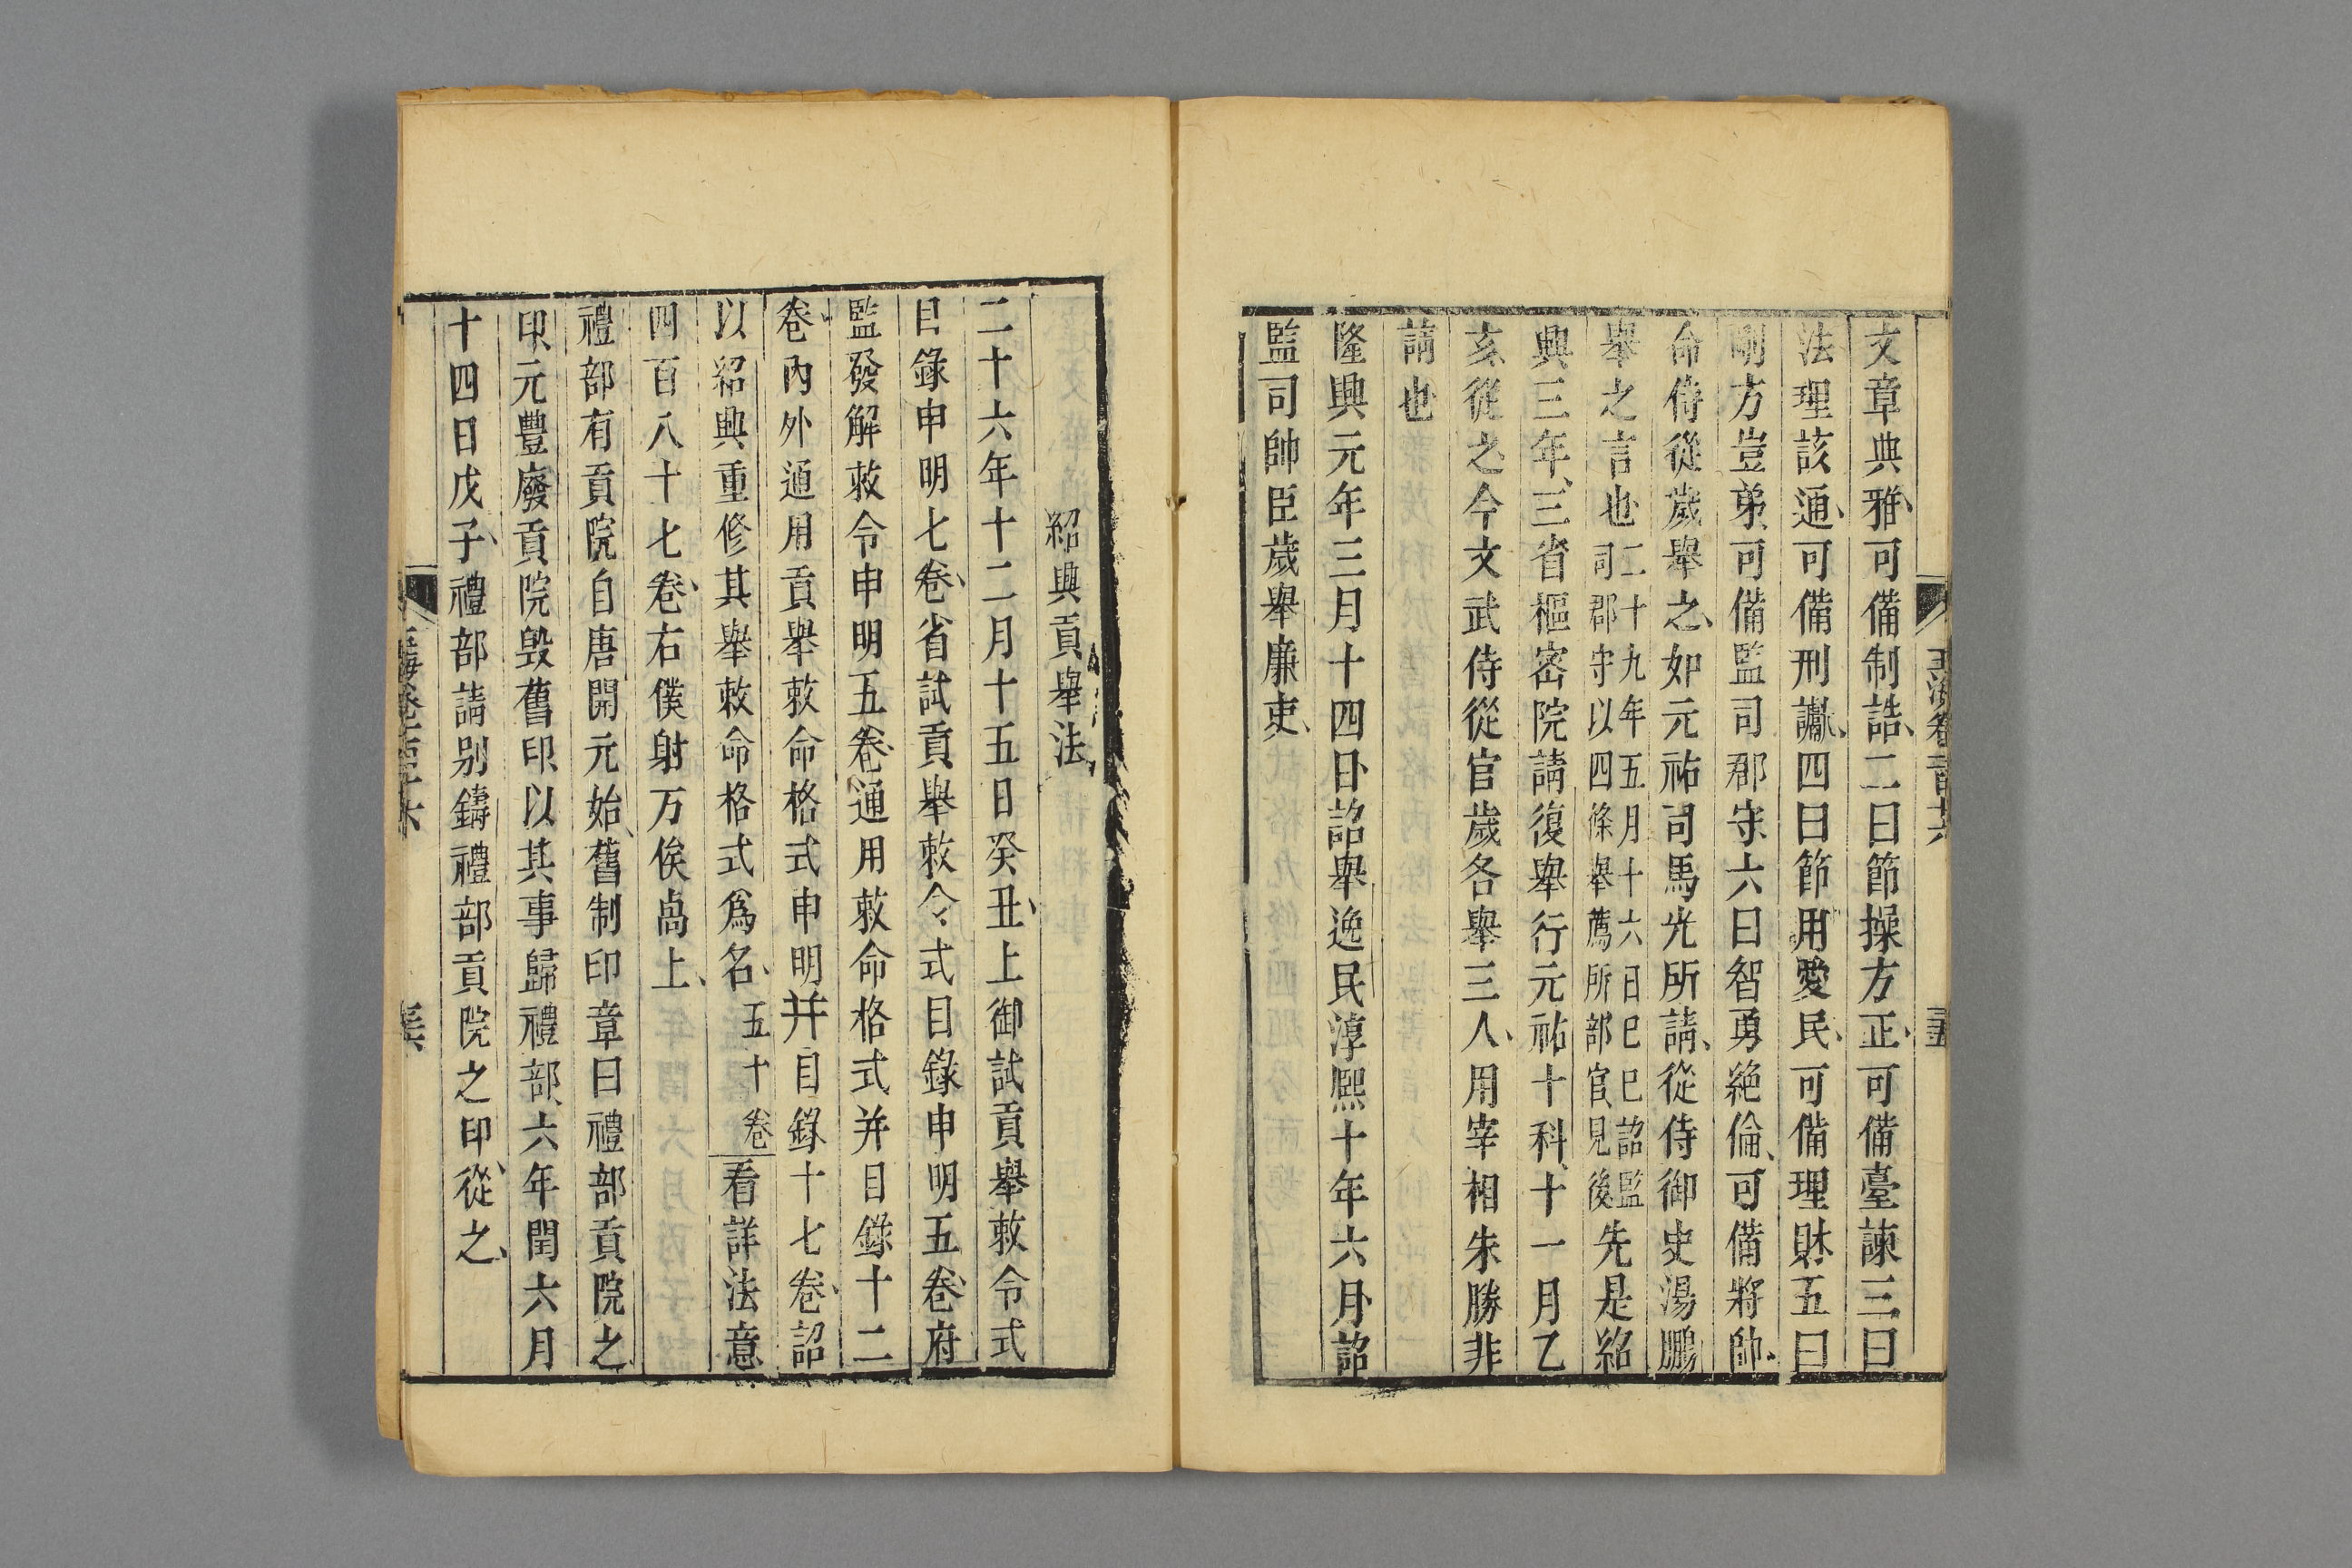 文章典雅可備制誥二曰節操方正可備臺諫三曰
法理該通可備刑讞四曰節用愛民可備理財五曰
剛方豈弟可備監司郡守六曰智勇絶倫可備將帥
命侍從歲舉之如元祐司馬光所請從侍御史湯鵬
舉之言也二十九年五月十六日己巳詔監司郡守以四條舉薦所部官見後先是紹
興三年三省樞密院請復舉行元祐十科十一月乙
亥從之今文武侍從官歲各舉三人用宰相朱勝非
請也
隆興元年三月十四日詔舉逸民淳熙十年六月詔
監司帥臣歲舉廉吏
紹興貢舉法
二十六年十二月十五日癸丑上御試貢舉敕令式
目錄申明七卷省試貢舉敕令式目錄申明五卷府
監發解敕令申明五卷通用敕命格式并目錄十二
卷內外通用貢舉敕命格式申明并目錄十七卷詔
以紹興重修其舉敕命格式為名五十卷看詳法意
四百八十七卷右僕射万俟卨上
禮部有貢院自唐開元始舊制印章曰禮部貢院之
印元豐廢貢院毀舊印以其事歸禮部六年閏六月
十四日戊子禮部請別鑄禮部貢院之印從之